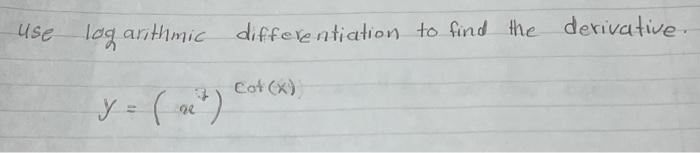 use logarithmic differentiation to find the derivative.
y = (x⁷)^cot(x)